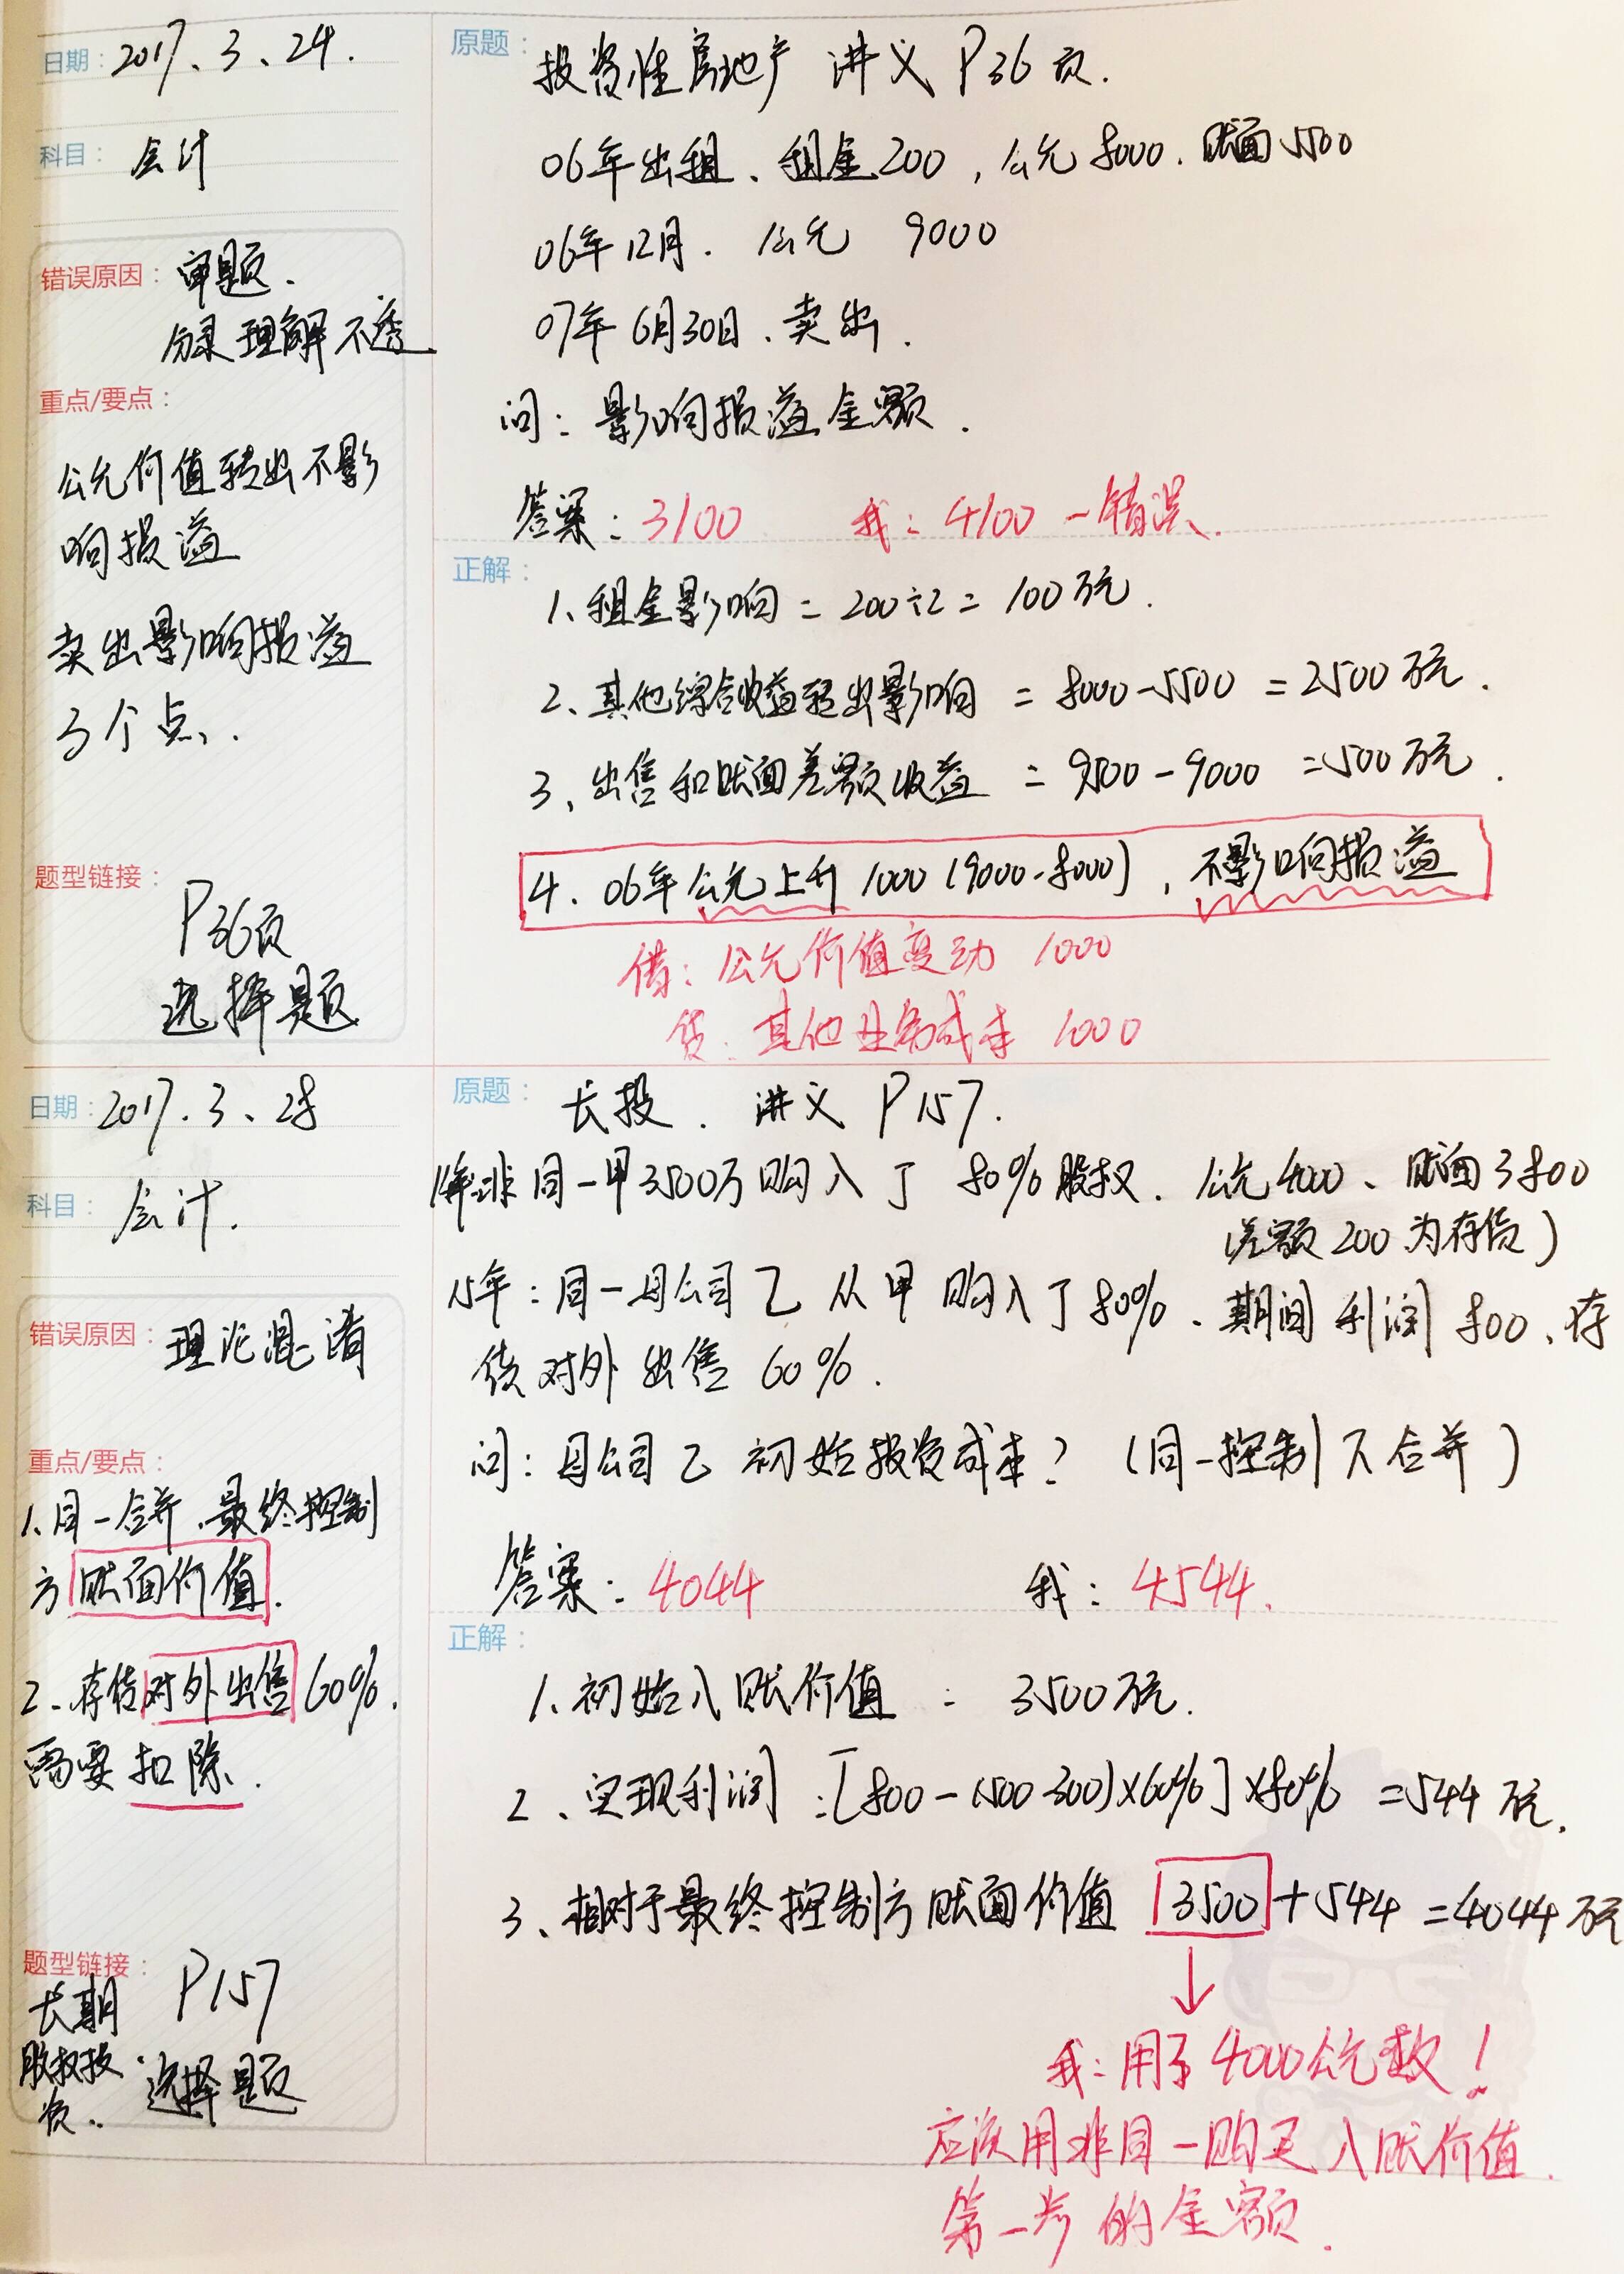 日期：2017、3、24.
科目：会计
错误原因：审题.
分录理解不透
重点/要点：
公允价值转出不影
响损溢
卖出影响损溢
3个点、.
题型链接：
P36页
选择题
原题：投资性房地产 讲义 P36页.
06年出租、租金200，公允8000.账面5500
06年12月. 公允 9000
07年6月30日、卖出.
问：影响损溢金额.
答案：3100 我：4100-错误.
正解：
1、租金影响=200÷2=100万元.
2、其他综合收益转出影响=8000-5500=2500万元.
3、出售和账面差额收益=9500-9000=500万元.
4.06年公允上升1000(9000-8000)，不影响损溢
借：公允价值变动 1000
贷：其他业务成本 1000
日期：2017.3、28
科目：会计.
错误原因：理论混淆
重点/要点：
1、同一合并、最终控制
方账面价值.
2、存货对外出售60%.
需要扣除.
题型链接：
长期 P157
股权投
资. 选择题
原题：长投. 讲义 P157.
非同一甲3500万购入丁80%股权.公允4000、账面3800
(差额200为存货)
15年：同一母公司乙从甲购入丁80%、期间利润800、存
货对外出售60%.
问：母公司乙初始投资成本？(同一控制下合并)
答案：4044 我：4544.
正解：
1、初始入账价值：3500万元.
2、实现利润：[800-(500-300)×60%]×80%=544万元.
3、相对于最终控制方账面价值 3500+544=4044万元
我：用了4000公允数！
应该用非同一购买入账价值.
第一步的金额.